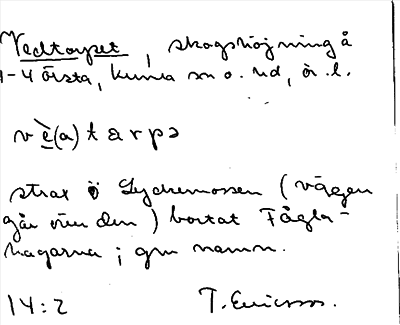 Vedtorpet, skogshöjning å
1-4 Örsta, Kumla sn o. hd, Ör. l.
v è(a) t a r p ə
strax ö Lyckemossen (vägen
går över den) bortåt Fågla-
hagarna; gm namn.
14:2 T. Ericsson.